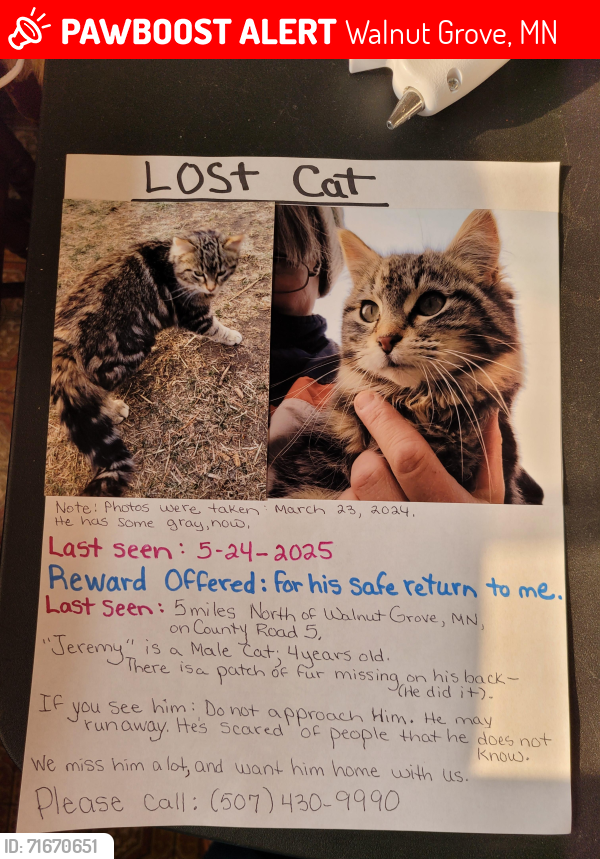 PAWBOOST ALERT Walnut Grove, MN
LOST Cat
Note: Photos were taken: March 23, 2024.
He has some gray, now.
Last seen: 5-24-2025
Reward Offered: for his safe return to me.
Last Seen: 5 miles North of Walnut Grove, MN,
on County Road 5,
"Jeremy" is a Male Cat; 4 years old.
There is a patch of fur missing on his back-
(He did it).
If you see him: Do not approach Him. He may
run away. He's scared of people that he does not
know.
We miss him alot, and want him home with us.
Please Call: (507) 430-9990
ID: 71670651